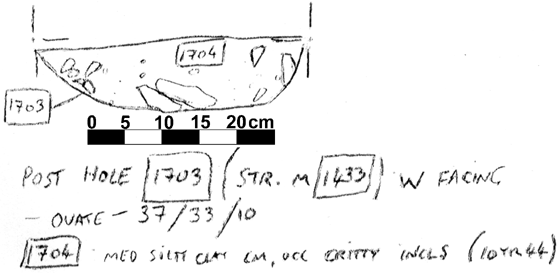 1704
1703
0 5 10 15 20 cm
POST HOLE 1703 (STR. M 1433) W FACING
- OVATE - 37/33/10
1704 MED SILTY CLAY LM, OCC GRITTY INCLS (10YR 44)